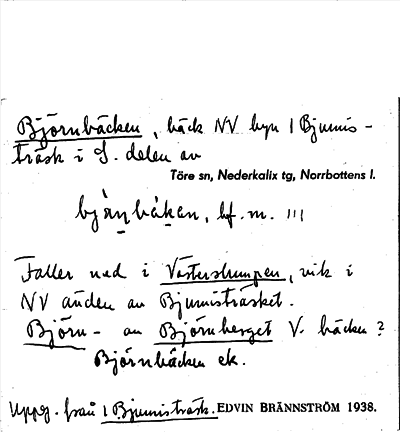 Björnbäcken, bäck NV byn 1 Bjumis-
träsk i S. delen av
Töre sn, Nederkalix tg, Norrbottens l.
bf. m. III
Faller ned i Västerslumpen, vik i
NV änden av Bjumisträsket.
Björn- av Björnberget V. bäcken?
Björnbäcken ek.
Uppg. från 1 Bjumisträsk. EDVIN BRÄNNSTRÖM 1938.